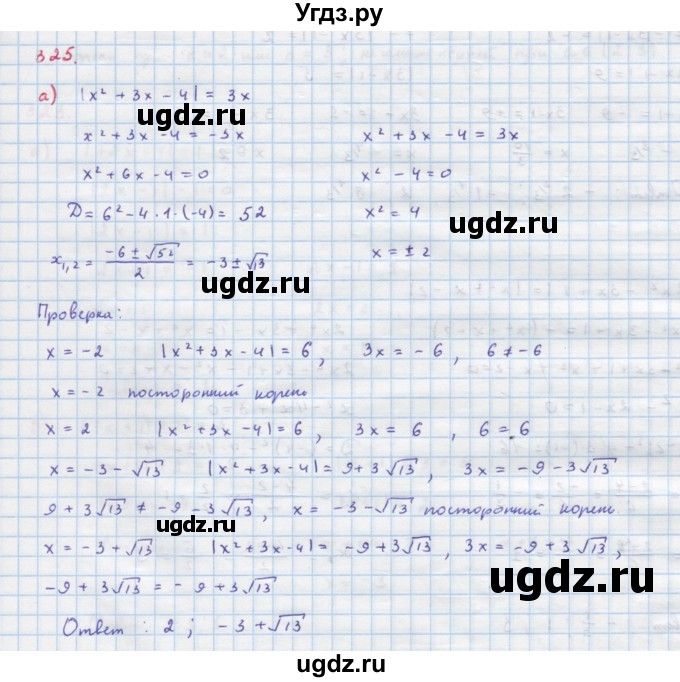 Угдз.ру
325.
а) |x² + 3x - 4| = 3x
ugdz.ru
x² + 3x - 4 = -3x    x² + 3x - 4 = 3x
x² + 6x - 4 = 0    x² - 4 = 0
D = 6² - 4 · 1 · (-4) = 52    x² = 4
ugdz.ru
x₁,₂ = (-6 ± √52)/2 = -3 ± √13    x = ± 2
ugdz.ru
Проверка:
x = -2    |x² + 3x - 4| = 6,    3x = -6,    6 ≠ -6
ugdz.ru
x = -2 посторонний корень
x = 2    |x² + 3x - 4| = 6,    3x = 6,    6 = 6
ugdz.ru
x = -3 - √13    |x² + 3x - 4| = 9 + 3√13,    3x = -9 - 3√13
9 + 3√13 ≠ -9 - 3√13,    x = -3 - √13 посторонний корень
ugdz.ru
x = -3 + √13    |x² + 3x - 4| = -9 + 3√13,    3x = -9 + 3√13,
ugdz.ru
-9 + 3√13 = -9 + 3√13
Ответ : 2 ; -3 + √13
ugdz.ru